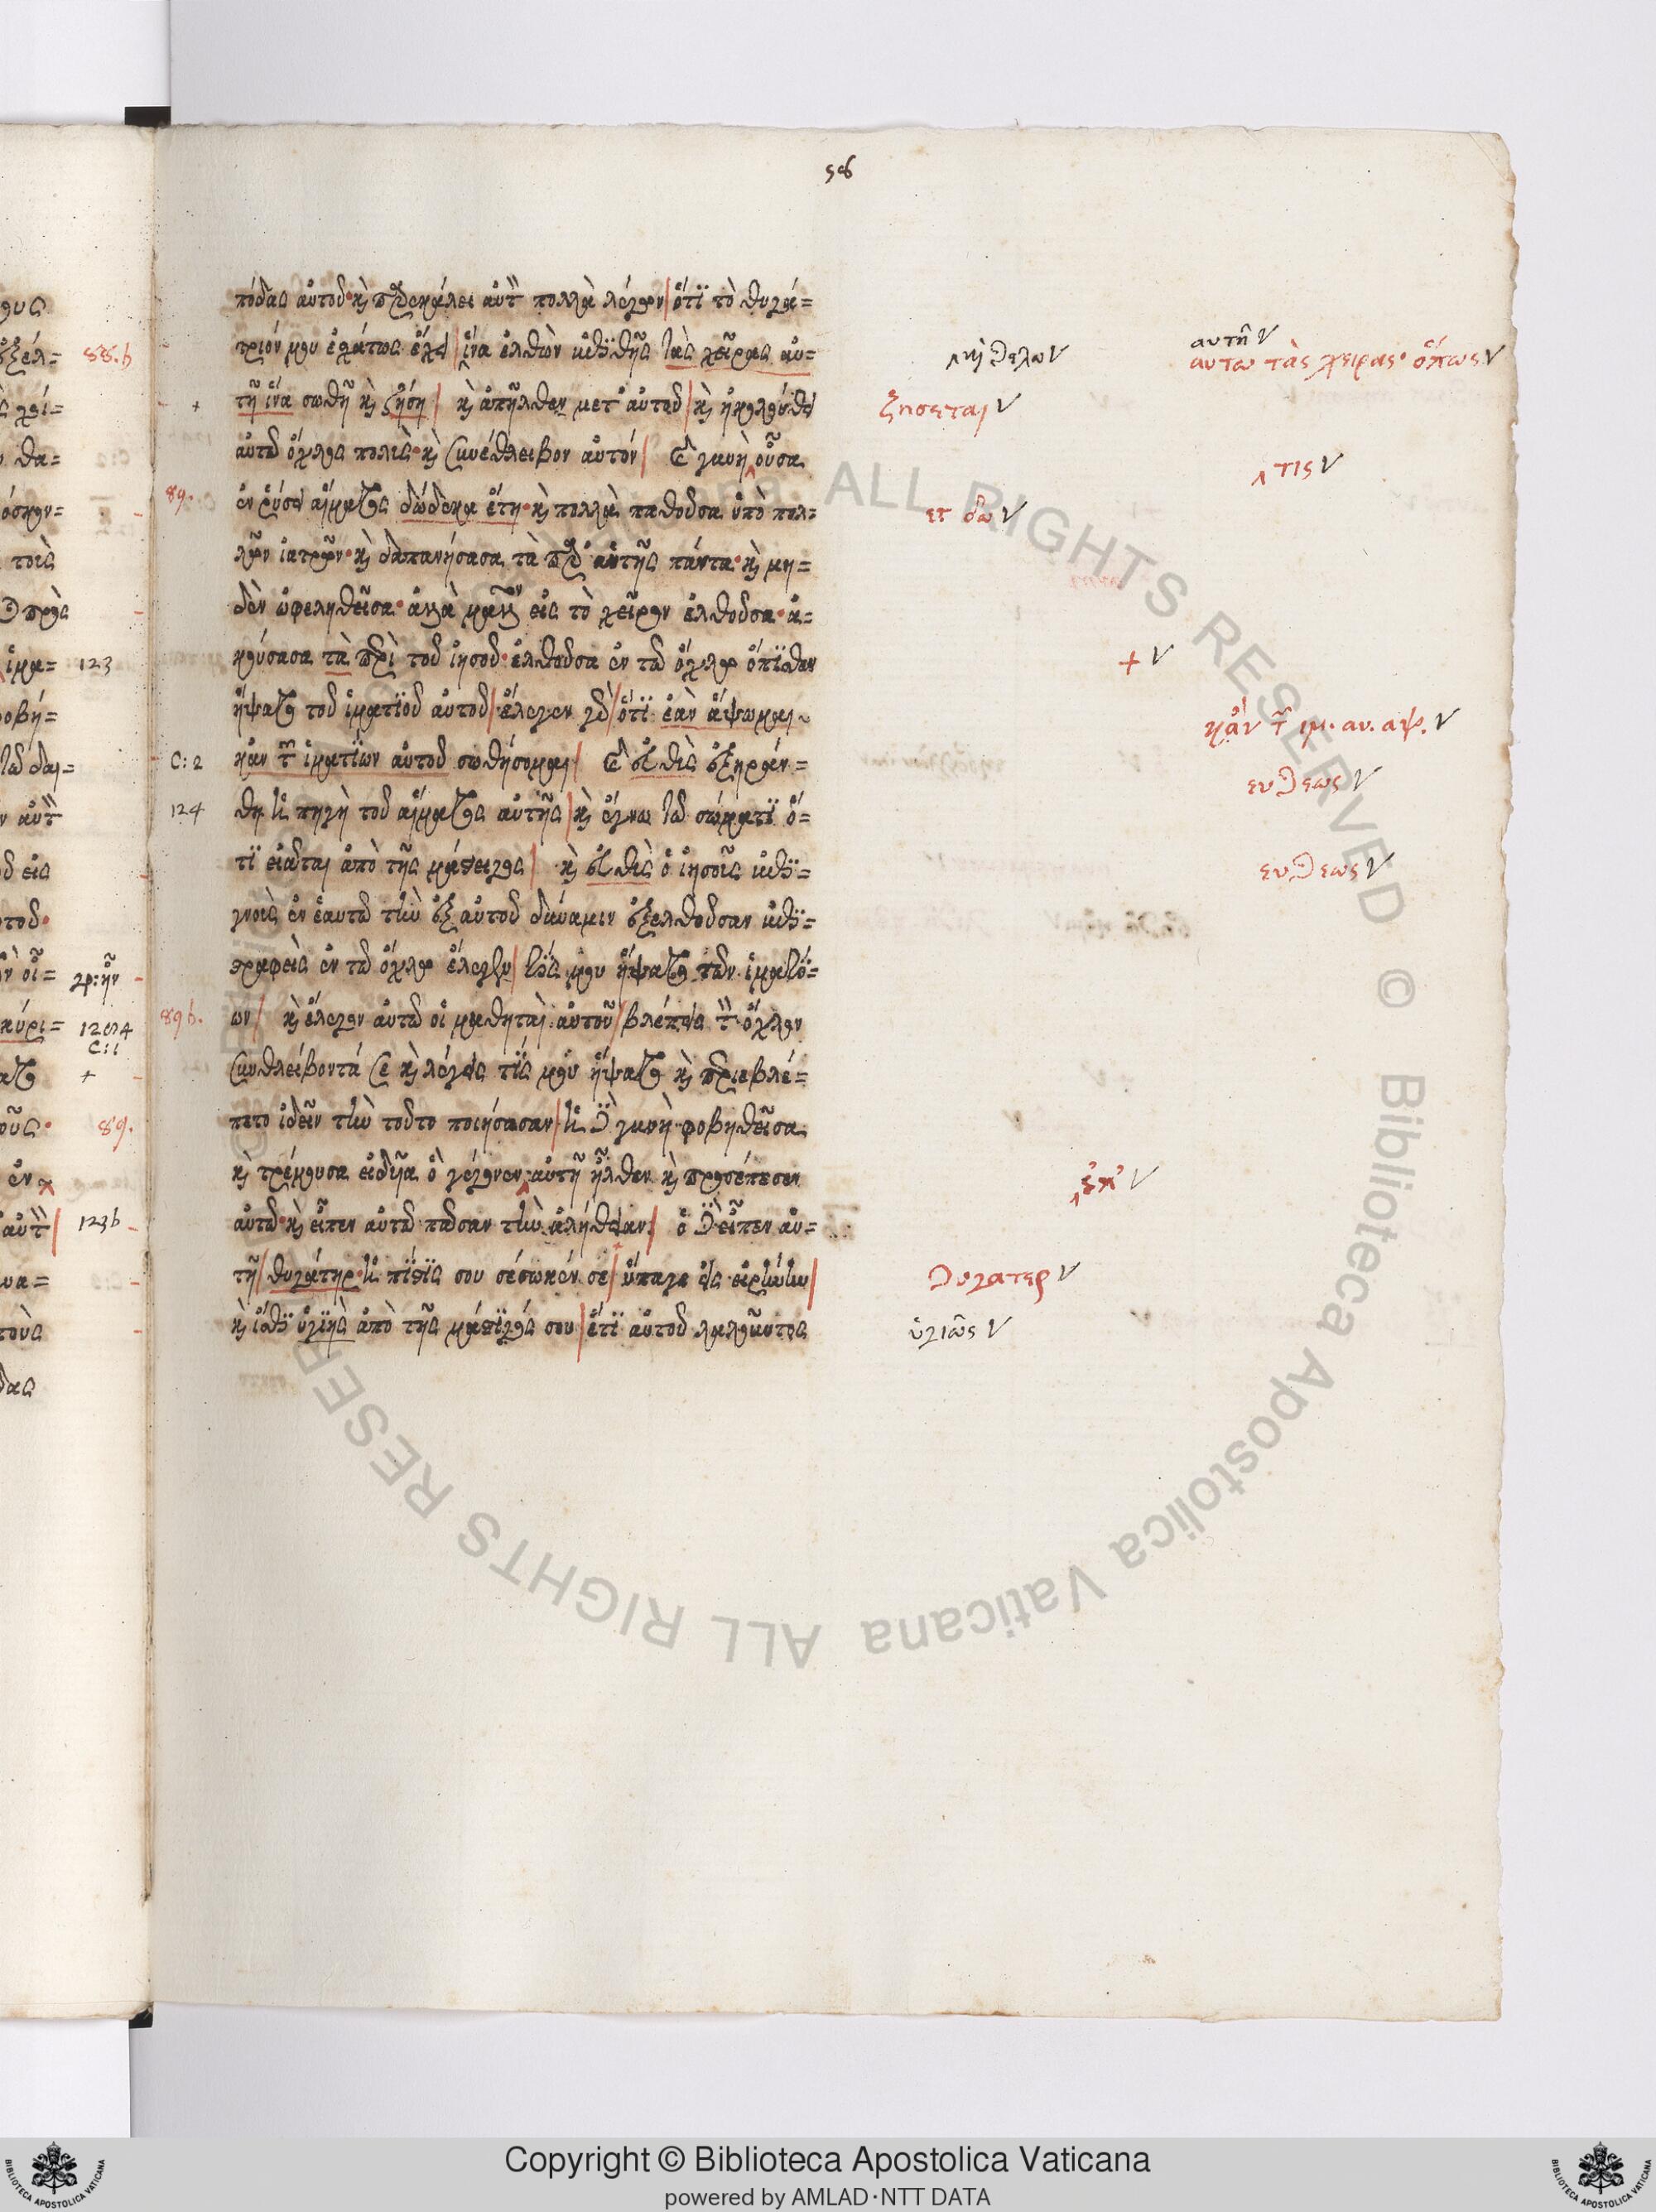 58
πόδας αὐτοῦ· κ̀ παρεκάλει αὐτὸν πολλὰ λέγων ὅτϊ τὸ θυγά=
τριόν μου ἐσχάτως ἔχει ἵνα ἐλθὼν ἐπϊθῆς τὰς χεῖρας αὐ=
τῆ ἵνα σωθῆ κ̀ ζήση κ̀ ἀπῆλθεν μετ' αὐτοῦ κ̀ ἠκολούθει
αὐτῶ ὄχλος πολὺς· κ̀ συνέθλειβον αὐτόν κ̀ γυνὴ οὖσα
ἐν ῥύσει αἵματος δώδεκα ἔτη· κ̀ πολλὰ παθοῦσα ὑπὸ πολ=
λῶν ἰατρῶν· κ̀ δαπανήσασα τὰ παρ' αὐτῆς πάντα· κ̀ μη=
δὲν ὠφεληθεῖσα· ἀλλὰ μᾶλλον εἰς τὸ χεῖρον ἐλθοῦσα· ἀ=
κούσασα τὰ περὶ τοῦ ἰησοῦ· ἐλθοῦσα ἐν τῶ ὄχλω ὄπϊσθεν
ἥψατο τοῦ ἱματϊοῦ αὐτοῦ ἔλεγεν γὰρ ὅτϊ ἐὰν ἅψωμαι
κἂν τῶν ἱματϊων αὐτοῦ σωθήσομαι κ̀ εὐθὺς ἐξηράν=
θη ἡ πηγὴ τοῦ αἵματος αὐτῆς κ̀ ἔγνω τῶ σώματϊ ὅ=
τϊ εἰᾶται ἀπὸ τῆς μάστειγος κ̀ εὐθὺς ὁ ἰησοῦς ἐπϊ=
γνοὺς ἐν ἑαυτῶ τὴν ἐξ αὐτοῦ δύναμιν ἐξελθοῦσαν ἐπϊ=
στραφεὶς ἐν τῶ ὄχλω ἔλεγεν τίς μου ἥψατο τῶν ἱματϊ=
ων κ̀ ἔλεγον αὐτῶ οἱ μαθηταὶ αὐτοῦ βλέπεις τὸν ὄχλον
συνθλείβοντά σε κ̀ λέγεις τίς μου ἥψατο κ̀ περιεβλέ=
πετο ἰδεῖν τὴν τοῦτο ποιήσασαν ἡ δὲ γυνὴ φοβηθεῖσα
κ̀ τρέμουσα εἰδυῖα ὃ γέγονεν αὐτῆ ἦλθεν κ̀ προσέπεσεν
αὐτῶ· κ̀ εἶπεν αὐτῶ πᾶσαν τὴν ἀλήθειαν ὁ δὲ εἶπεν αὐ=
τῆ θυγάτηρ· ἡ πίστϊς σου σέσωκέν σε ὕπαγε εἰς εἰρήνην
κ̀ ἴσθϊ ὑγιὴς ἀπὸ τῆς μάστϊγός σου ἔτϊ αὐτοῦ λαλοῦντος
88.b
89.
123
C: 2
124
89b.
γρ: ἦν
C: 1
89.
123b
κ̀ θελω
αυτῆ
αυτω τὰς χειρας· ὅπως
ζησεται
τις
ετ δω
+
κἂν τ̃ ιμ. αυ. αψ.
ευθεως
ευθεως
ἐπ'
θυγατερ
ὑγιῶς
Copyright © Biblioteca Apostolica Vaticana
powered by AMLAD·NTT DATA
ALL RIGHTS RESERVED © Biblioteca Apostolica Vaticana
BIBLIOTECA APOSTOLICA VATICANA